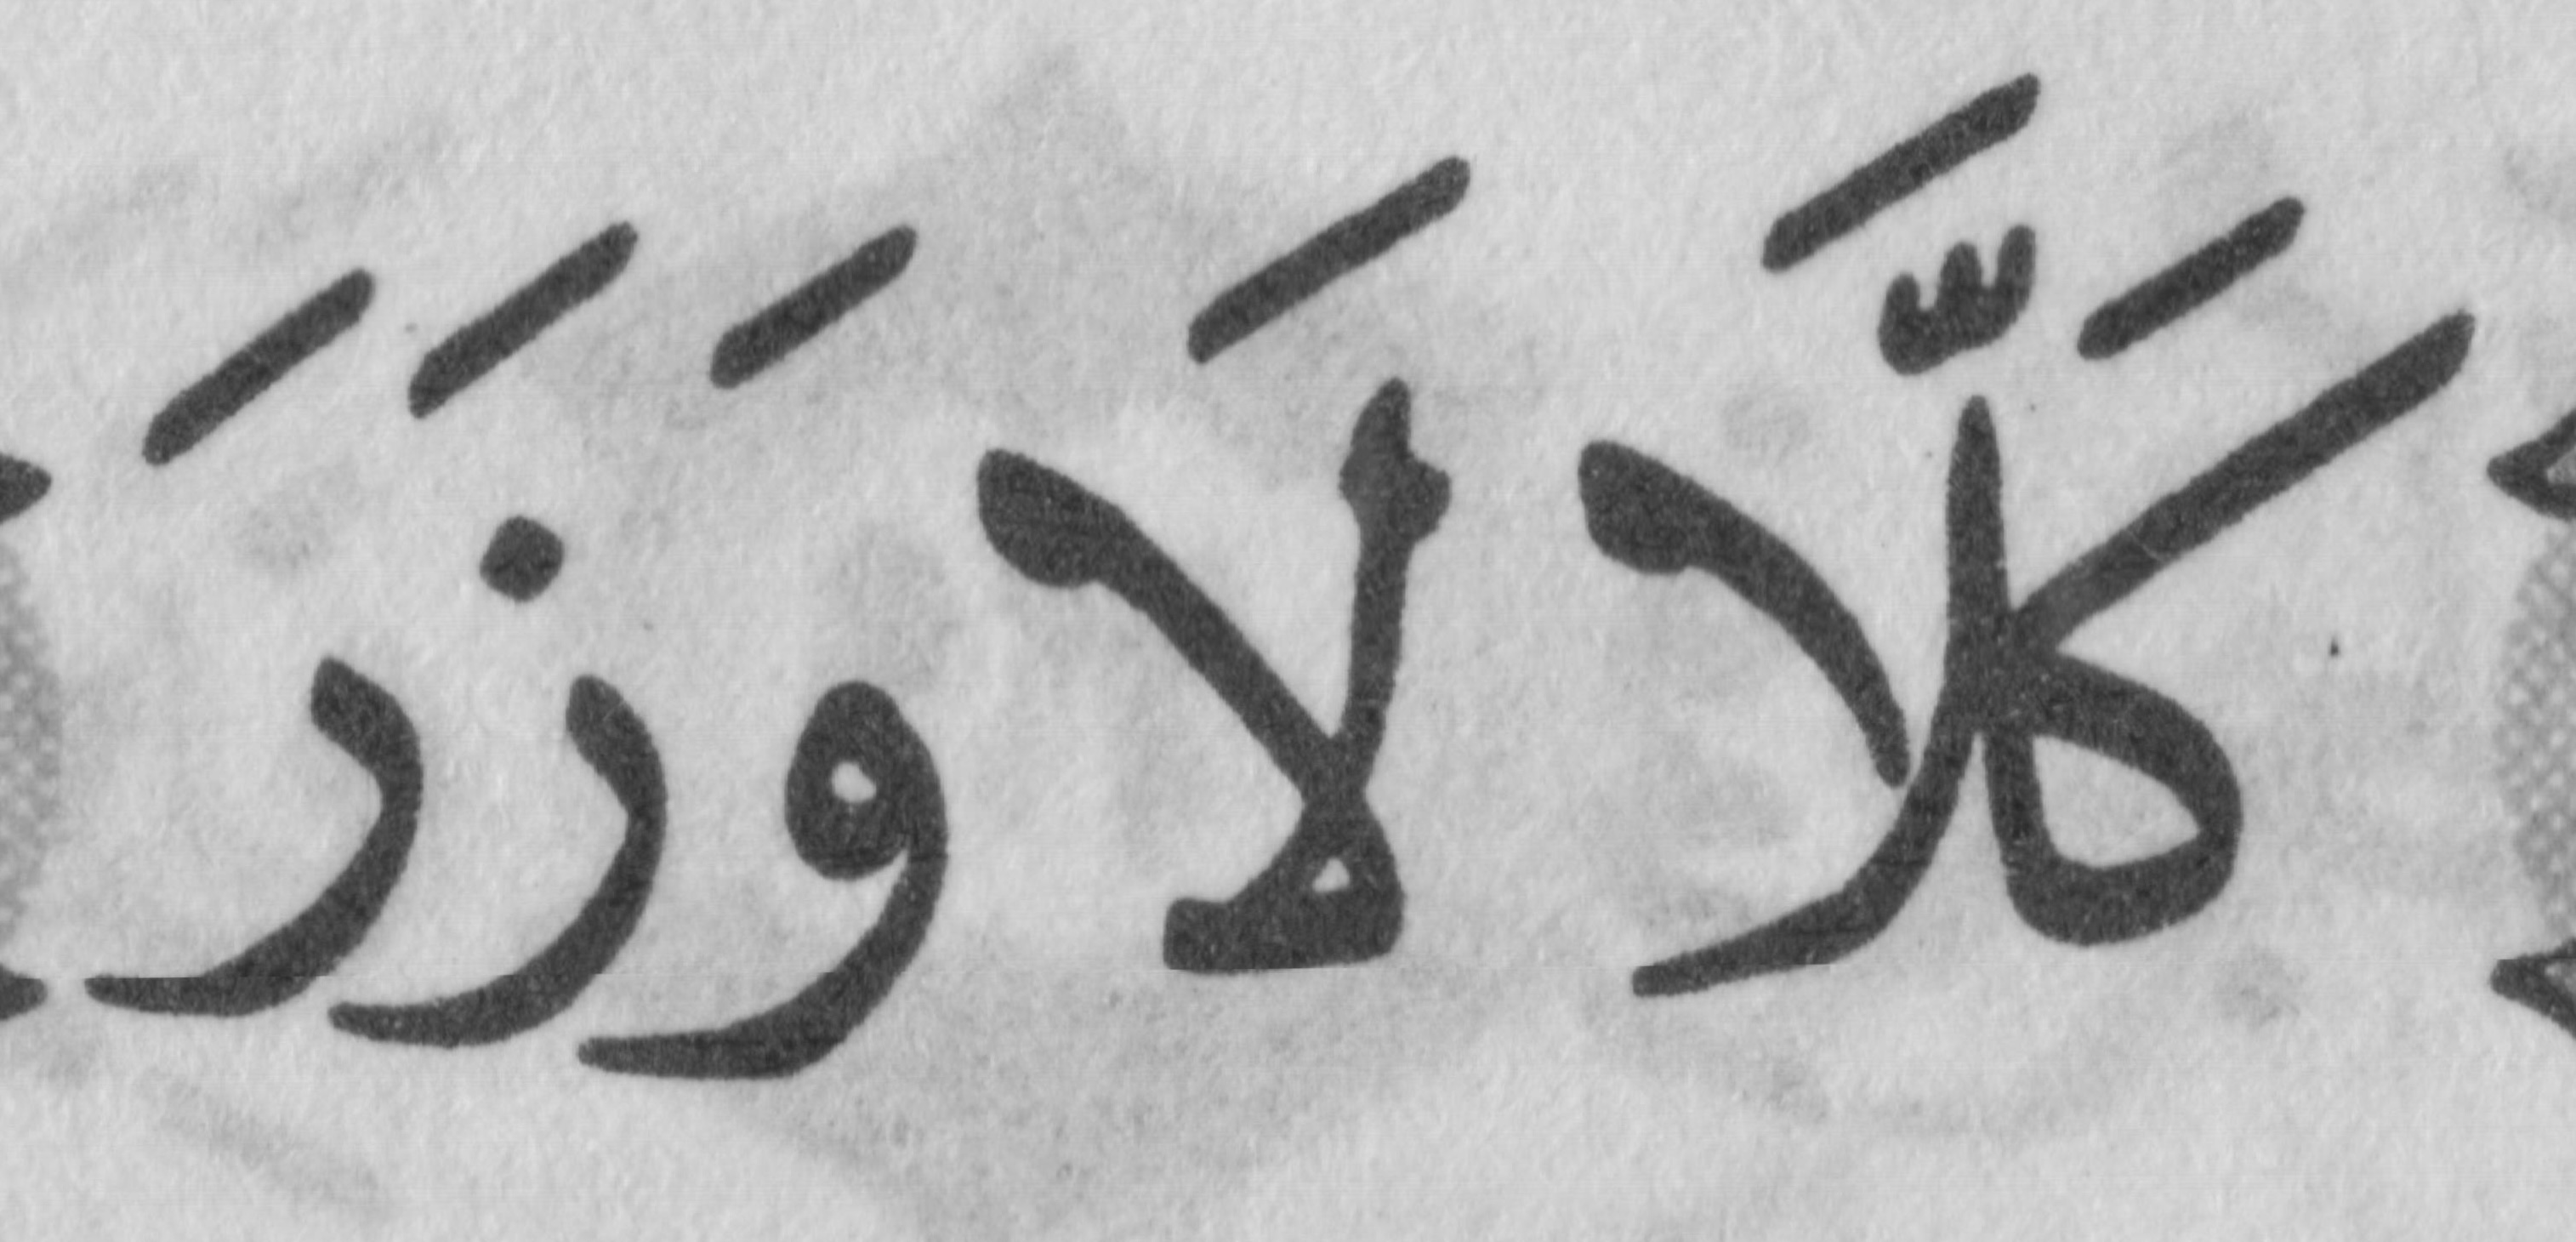 كَلَّا لَا وَزَرَ